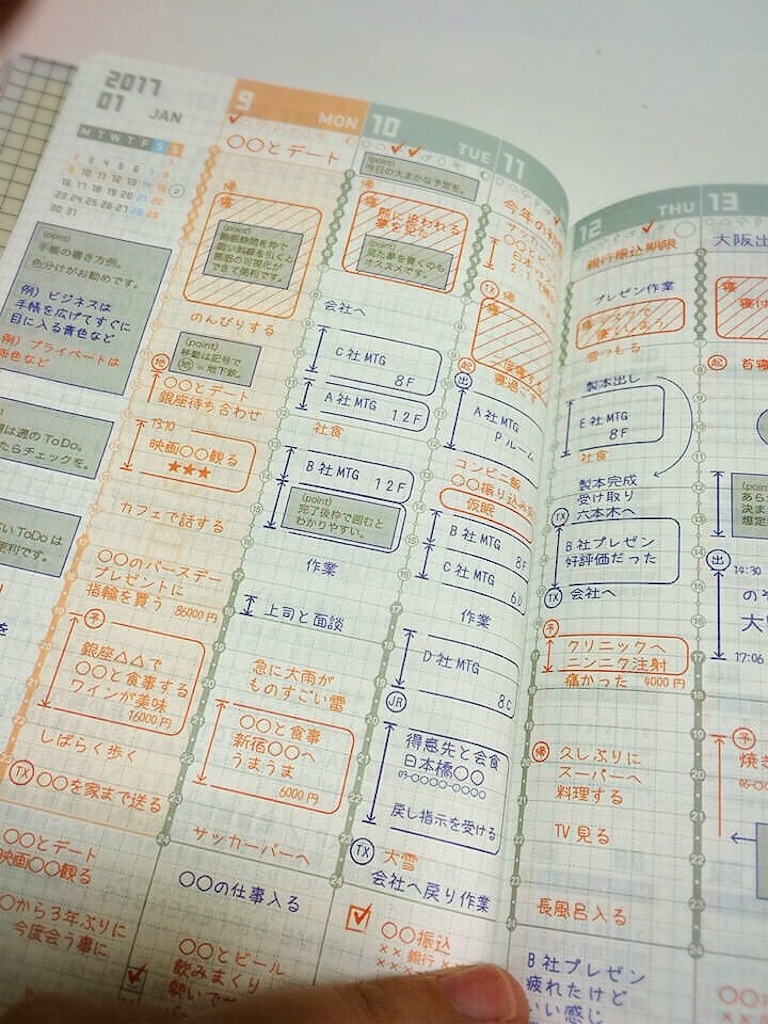 2017
01 JAN
M T W T F S S
2 3 4 5 6 7 8
9 10 11 12 13 14 15
16 17 18 19 20 21 22
23 24 25 26 27 28 29
30 31
(point)
手帳の書き方例。
色分けがお勧めです。
例）ビジネスは
手帳を広げてすぐに
目に入る青色など
例）プライベートは
赤色など
は週の ToDo。
たらチェックを。
ToDo は
便利です。
9 MON
○○とデート
帰
寝
(point)
睡眠時間を枠で
囲い斜線を引くと
睡眠の可視化が
できて便利です。
のんびりする
(point)
移動は記号で
地 = 地下鉄。
地
○○とデート
銀座待ち合わせ
13:10
映画○○観る
★★★
カフェで話する
○○のバースデー
プレゼントに
指輪を買う 86000円
予
銀座△△で
○○と食事する
ワインが美味
16000円
しばらく歩く
TX ○○を家まで送る
○○とデート
映画○○観る
○から3年ぶりに
今度会う事に
10 TUE
(point)
今日の大まかな予定を。
帰
寝
熊に追われる
夢を見た
(point)
見た夢を書くのも
オススメです。
会社へ
C社MTG
8F
A社MTG 12F
社食
B社MTG
12F
(point)
完了後枠で囲むと
わかりやすい。
作業
上司と面談
急に大雨が
ものすごい雷
○○と食事
新宿○○へ
うまうま
6000円
サッカーバーへ
○○の仕事入る
○○とビール
飲みまくり
11
今年の
サッカー
○○と
日本
TX 帰
寝
寝過ごす
出
A社MTG
Pルーム
コンビニ飯
○○振り込み
仮眠
B社MTG
8F
C社MTG
作業
D社MTG
8C
JR
得意先と会食
日本橋○○
03-○○○○-○○○○
戻し指示を受ける
TX 大雪
会社へ戻り作業
○○振込
×× 銀行
12 THU
銀行振込期限
プレゼン作業
寝
雪つもる
製本出し
E社MTG
8F
社食
製本完成
受け取り
TX 六本木へ
B社プレゼン
好評価だった
TX 会社へ
予
クリニックへ
ニンニク注射
痛かった 4000円
帰 久しぶりに
スーパーへ
料理する
TV見る
長風呂入る
B社プレゼン
疲れたけど
いい感じ
13
大阪出
寝
起 首寝
(point)
出 14:30
17:06
予
焼き